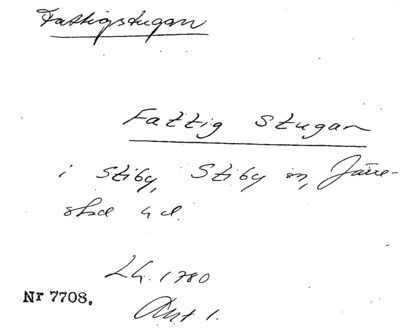 Fattigstugan
Fattig Stugan
i Stiby, Stiby sn, Järre-
stad hd.
Lh. 1780
Nr 7708.
Akt 1.